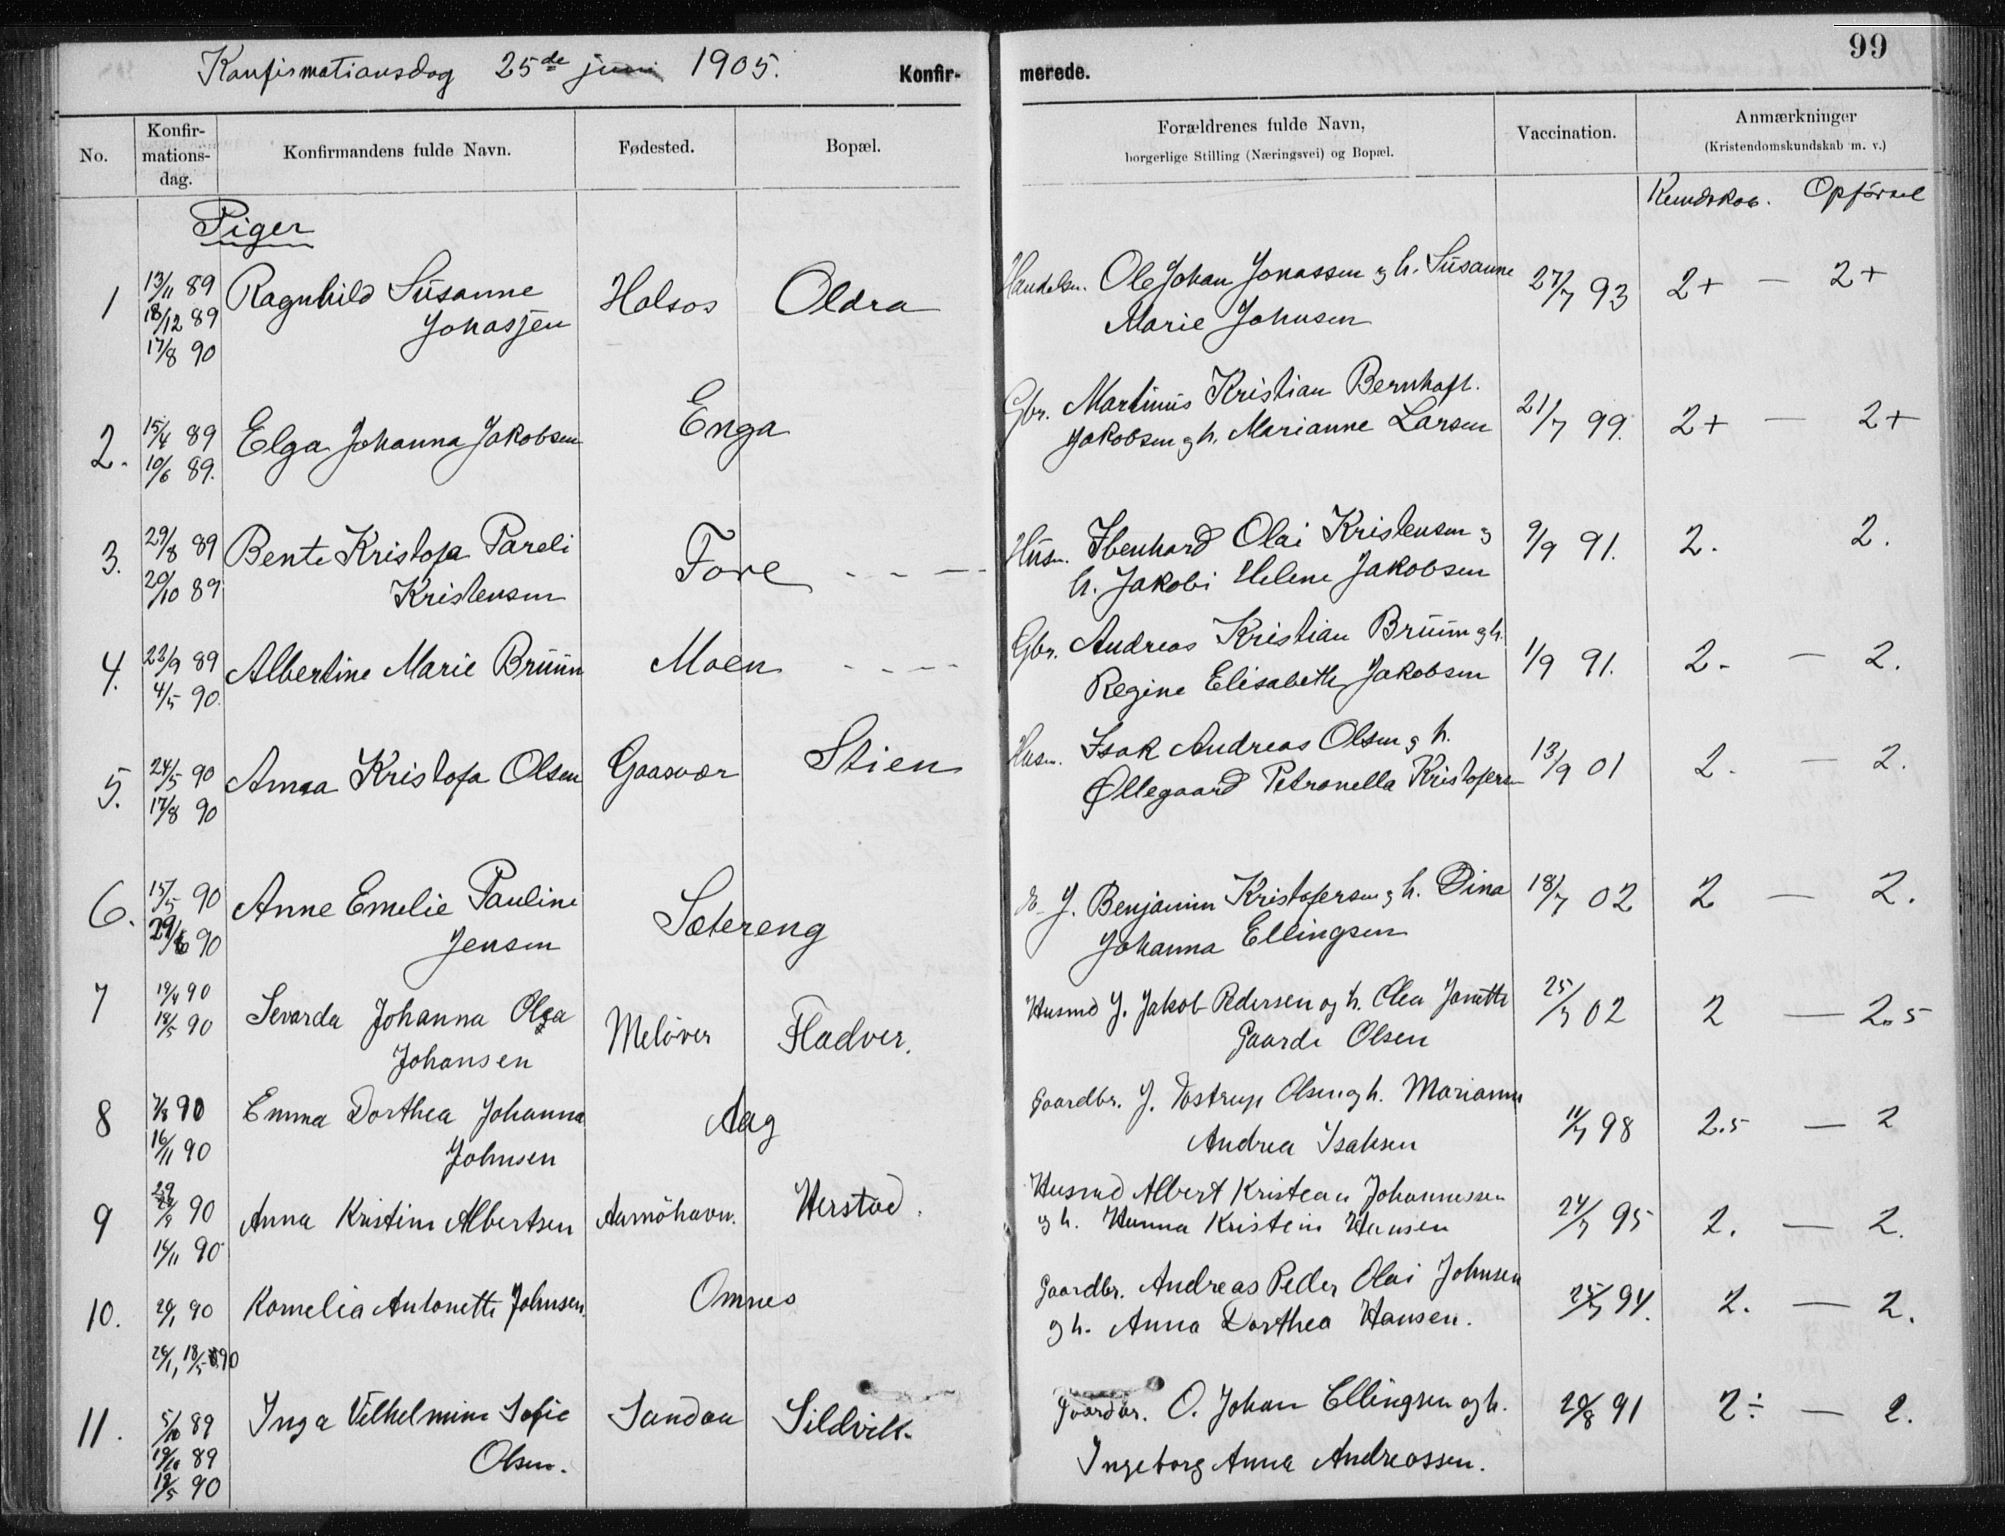 Konfirmationsdag 25de juni 1905.
Konfir-
merede.
99
No.
Konfir-
mations-
dag.
Konfirmandens fulde Navn.
Fødested.
Bopæl.
Forældrenes fulde Navn,
borgerlige Stilling (Næringsvei) og Bopæl.
Vaccination.
Anmærkninger
(Kristendomskundskab m. v.)
Kundskab. Opførsel
Piger
1 13/11 89 Ragnhild Susanne Halsos Oldra Handelsm. Ole Johan Jonassen og h. Susanne 27/7 93 2+ — 2+
18/12 89 Jonassen Marie Johnsen
17/8 90
2. 15/4 89 Elga Johanna Jakobsen Enga Gbr. Martinus Kristian Bernhoft. 21/7 99. 2+ — 2+
10/6 89. Jakobsen og h. Marianne Larsen
3. 29/8 89 Bente Kristofa Pareli Fore - - — Husm. Ibenhard Olai Kristensen og 9/9 91. 2. 2.
20/10 89 Kristensen h. Jakobi Helene Jakobsen
4. 23/9 89 Albertine Marie Bruun Moen - - - - Gbr. Andreas Kristian Bruun og h. 1/9 91. 2. — 2.
4/5 90. Regine Elisabeth Jakobsen
5. 24/5 90 Anna Kristofa Olsen Gaasvær Stien Husm. Isak Andreas Olsen og h. 13/9 01 2. — 2.
17/8 90 Øllegaard Petronella Kristofersen
6. 15/5 90 Anne Emelie Pauline Sætereng J. Benjamin Kristofersen og h. Dina 18/7 02 2 — 2.
29/6 90 Jensen Johanna Ellingsen
7 19/4 90 Sevarda Johanna Olga Meløver Fladver. Husmd J. Jakob Pedersen og h. Olea Janette 25/7 02 2 — 2.5
18/5 90 Johansen Gaarda Olsen
8 7/8 90 Emma Dorthea Johanna Aag Gaardbr. J. Tostrup Olsen og h. Marianne 11/7 98 2.5 — 2
16/11 90 Johnsen Andrea Isaksen
9 29/9 90 Anna Kristine Albertsen Aamøhavn. Herstad. Husmd Albert Kristean Johannessen 24/7 95 2. — 2.
16/11 90 og h. Hanna Kristein Hansen
10. 20/1 90 Kornelia Antonette Johnsen. Omnes Gaardbr. Andreas Peder Olai Johnsen 25/7 94. 2. — 2.
26/1, 18/5 90 og h. Anna Dorthea Hansen.
11. 5/10 89 Inga Vilhelmine Sofie Sandaa Sildvik. Gaardbr. O. Johan Ellingsen og h. 20/8 91 2÷ — 2.
19/10 89 Olsen. Ingeborg Anna Andreassen.
18/5 90